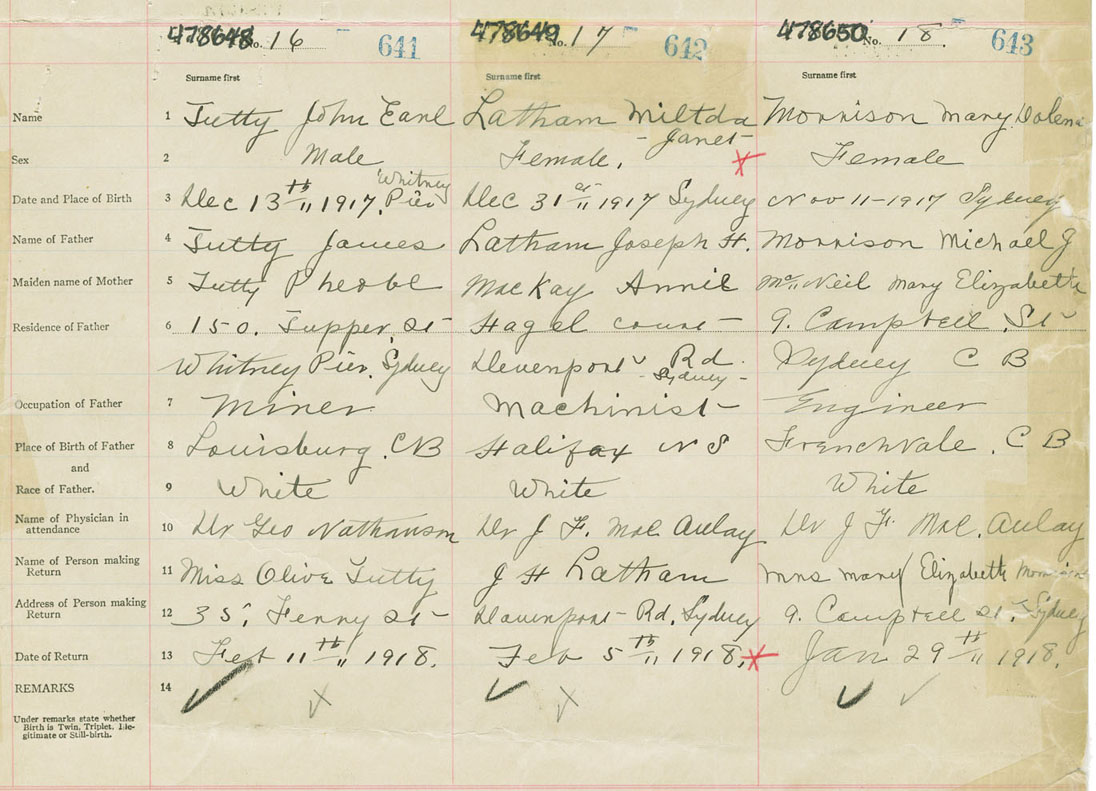 478648 No. 16 641 478649 No. 17 642 478650 No. 18. 643
Surname first Surname first Surname first
Name 1 Tutty John Earl Latham Miltda Morrison Mary Dolena
- Janet -
Sex 2 Male Female. Female
Whitney
Date and Place of Birth 3 Dec 13th 1917. Pier Dec 31st 1917 Sydney Nov 11-1917 Sydney
Name of Father 4 Tutty James Latham Joseph H. Morrison Michael J
Maiden name of Mother 5 Tutty Pheobe MacKay Annie McNeil Mary Elizabeth
Residence of Father 6 150. Tupper, St Hagel Court 9. Campbell St
Whitney Pier. Sydney Devenport Rd. Sydney C B
- Sydney -
Occupation of Father 7 Miner Machinist Engineer
Place of Birth of Father 8 Louisburg. CB Halifax N S Frenchvale. C B
and
Race of Father. 9 White White White
Name of Physician in
attendance 10 Dr Geo Nathanson Dr J F. MacAulay Dr J F. MacAulay
Name of Person making
Return 11 Miss Olive Tutty J H Latham Mrs Mary Elizabeth Morrison
Address of Person making
Return 12 35, Ferry St Davenport Rd, Sydney 9. Campbell St, Sydney
Date of Return 13 Feb 11th 1918. Feb 5th 1918. Jan 29th 1918.
REMARKS 14
Under remarks state whether
Birth is Twin, Triplet, Ille-
gitimate or Still-birth.